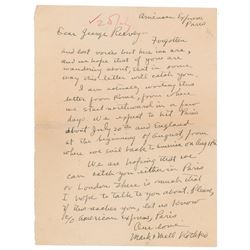 American Express
Paris
Dear George Reavey—
Forgotten
and lost voices but here we are,
and we hope that if you are
wandering about, that in some
way this letter will catch you.
I am actually writing this
letter from Rome, from where we
start northward in a few
days. We expect to hit Paris
about July 20th and England
at the beginning of August from
where we sail back to America on Aug 19th
We are hoping that we
can catch you either in Paris
or London. There is much that
I hope to talk to you about. Please,
if this reaches you, let us know
c/o American Express, Paris
Our love
Mark & Mell Rothko